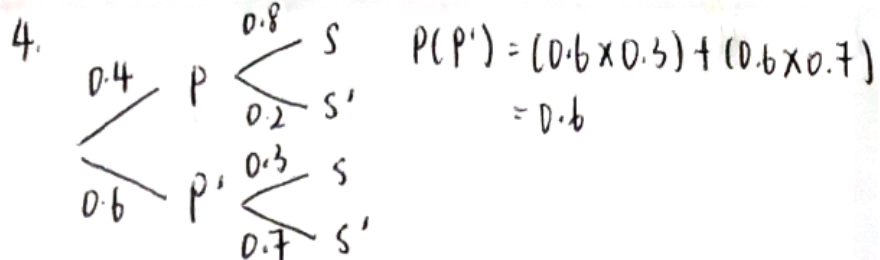 4.
0.8
S
0.4
P
0.2
S'
0.6
P'
0.3
S
0.7
S'
P(P') = (0.6 × 0.3) + (0.6 × 0.7)
= 0.6